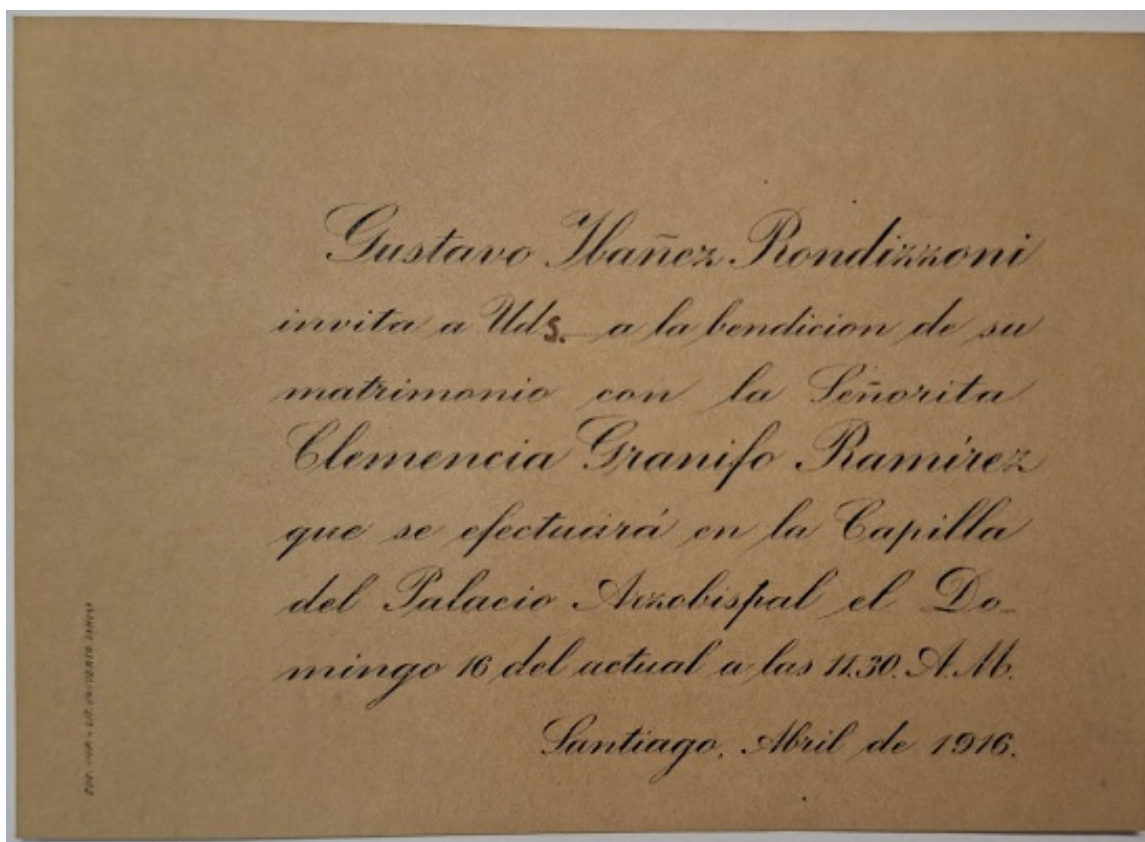 Gustavo Ibañez Rondizzoni
invita a Uds. a la bendicion de su
matrimonio con la Señorita
Clemencia Granifo Ramírez
que se efectuará en la Capilla
del Palacio Arzobispal el Do-
mingo 16 del actual a las 11.30. A.M.
Santiago, Abril de 1916.